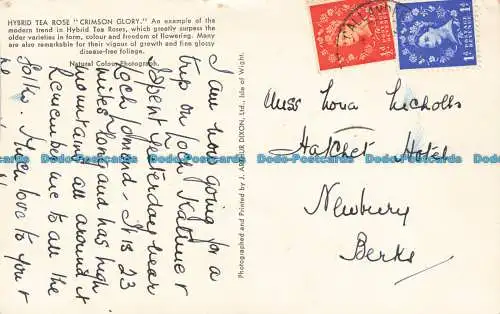 HYBRID TEA ROSE "CRIMSON GLORY." An example of the
modern trend in Hybrid Tea Roses, which greatly surpass the
older varieties in form, colour and freedom of flowering. Many
are also remarkable for their vigour of growth and fine glossy
disease-free foliage.
Natural Colour Photograph.
I am now going for a
trip on Loch Katrine &
Spent Yesterday near
Loch Lomond. It is 23
miles long and has high
mountains all around it
Remember me to all the
folks. Much love to you &
Photographed and Printed by J. ARTHUR DIXON, Ltd., Isle of Wight.
POSTAGE REVENUE
1d
1d
Miss Lora Nicholls
Hatchet Hotel
Newbury
Berks
Dodo-Postcards Dodo-Postcards Dodo-Postcards Dodo-Postcards Dodo-Postcards